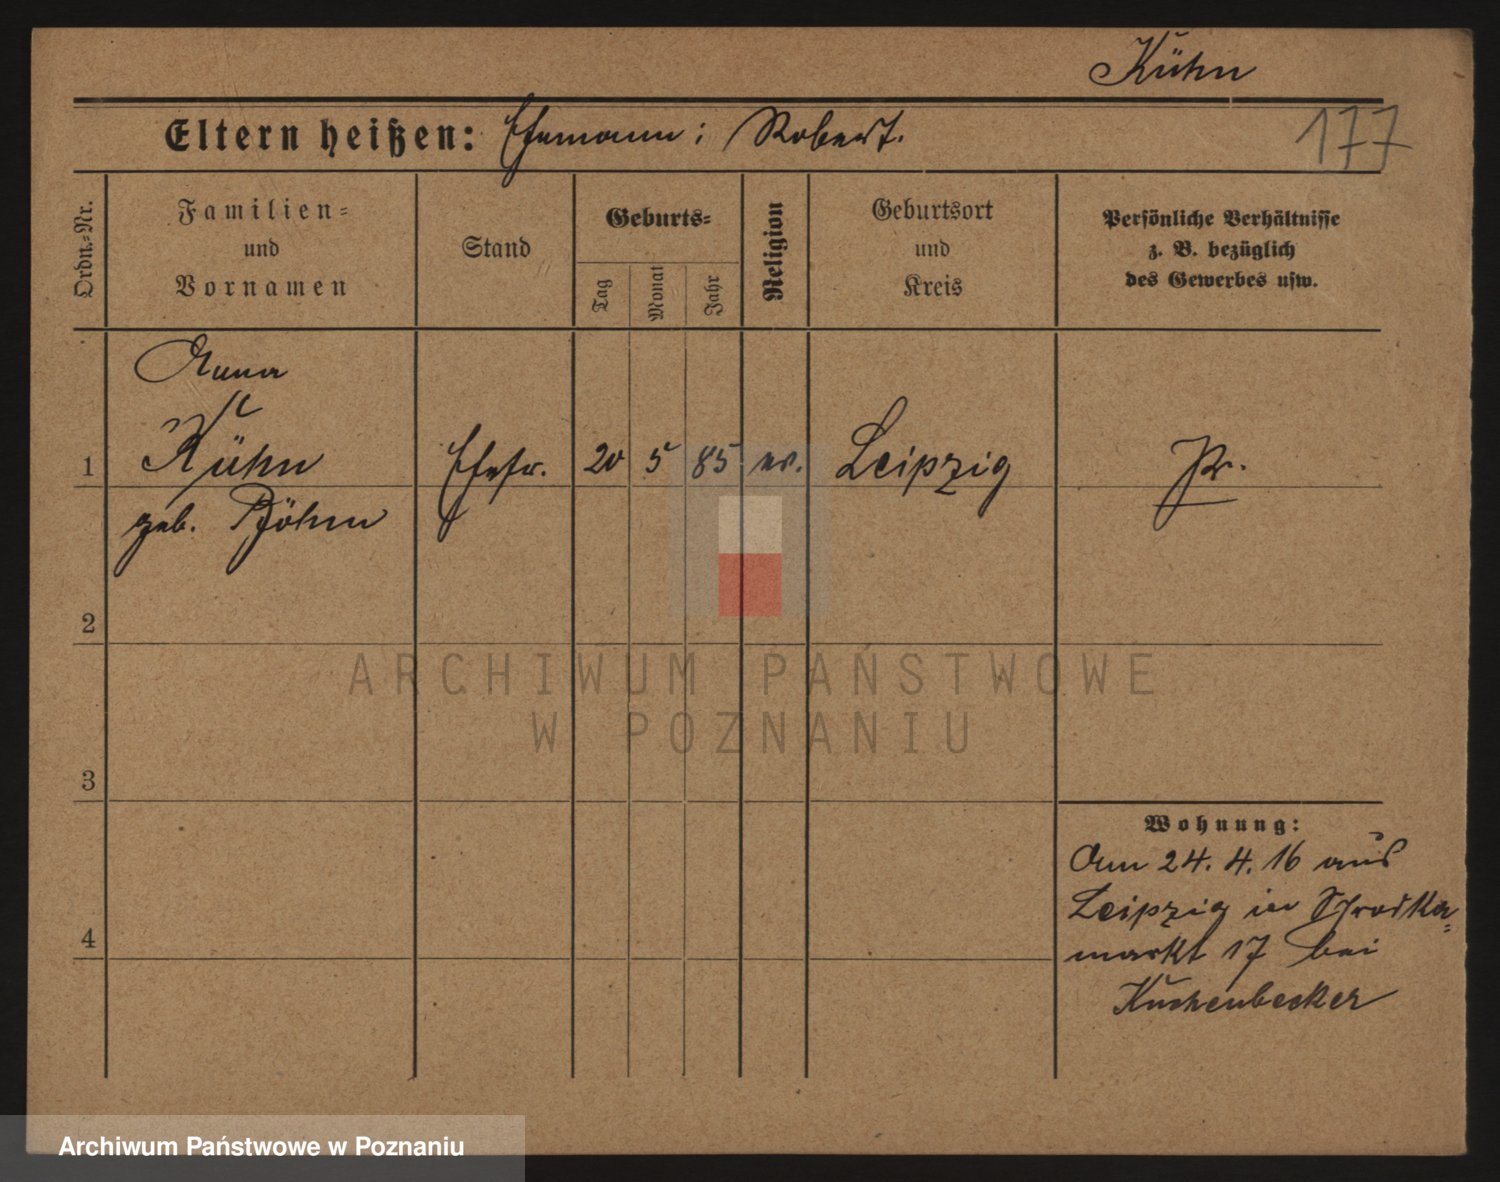 Kühn
Eltern heißen: Ehemann: Robert.
177
Ordn.-Nr.
Familien-
und
Vornamen
Stand
Geburts-
Tag
Monat
Jahr
Religion
Geburtsort
und
Kreis
Persönliche Verhältnisse
z. B. bezüglich
des Gewerbes usw.
Anna
1 Kühn Ehefr. 20 5 85 ev. Leipzig Pr.
geb. Böhm
2
3
4
Wohnung:
Am 24. 4. 16 aus
Leipzig in Schrodka-
markt 17 bei
Kuchenbecker
ARCHIWUM PAŃSTWOWE
W POZNANIU
Archiwum Państwowe w Poznaniu